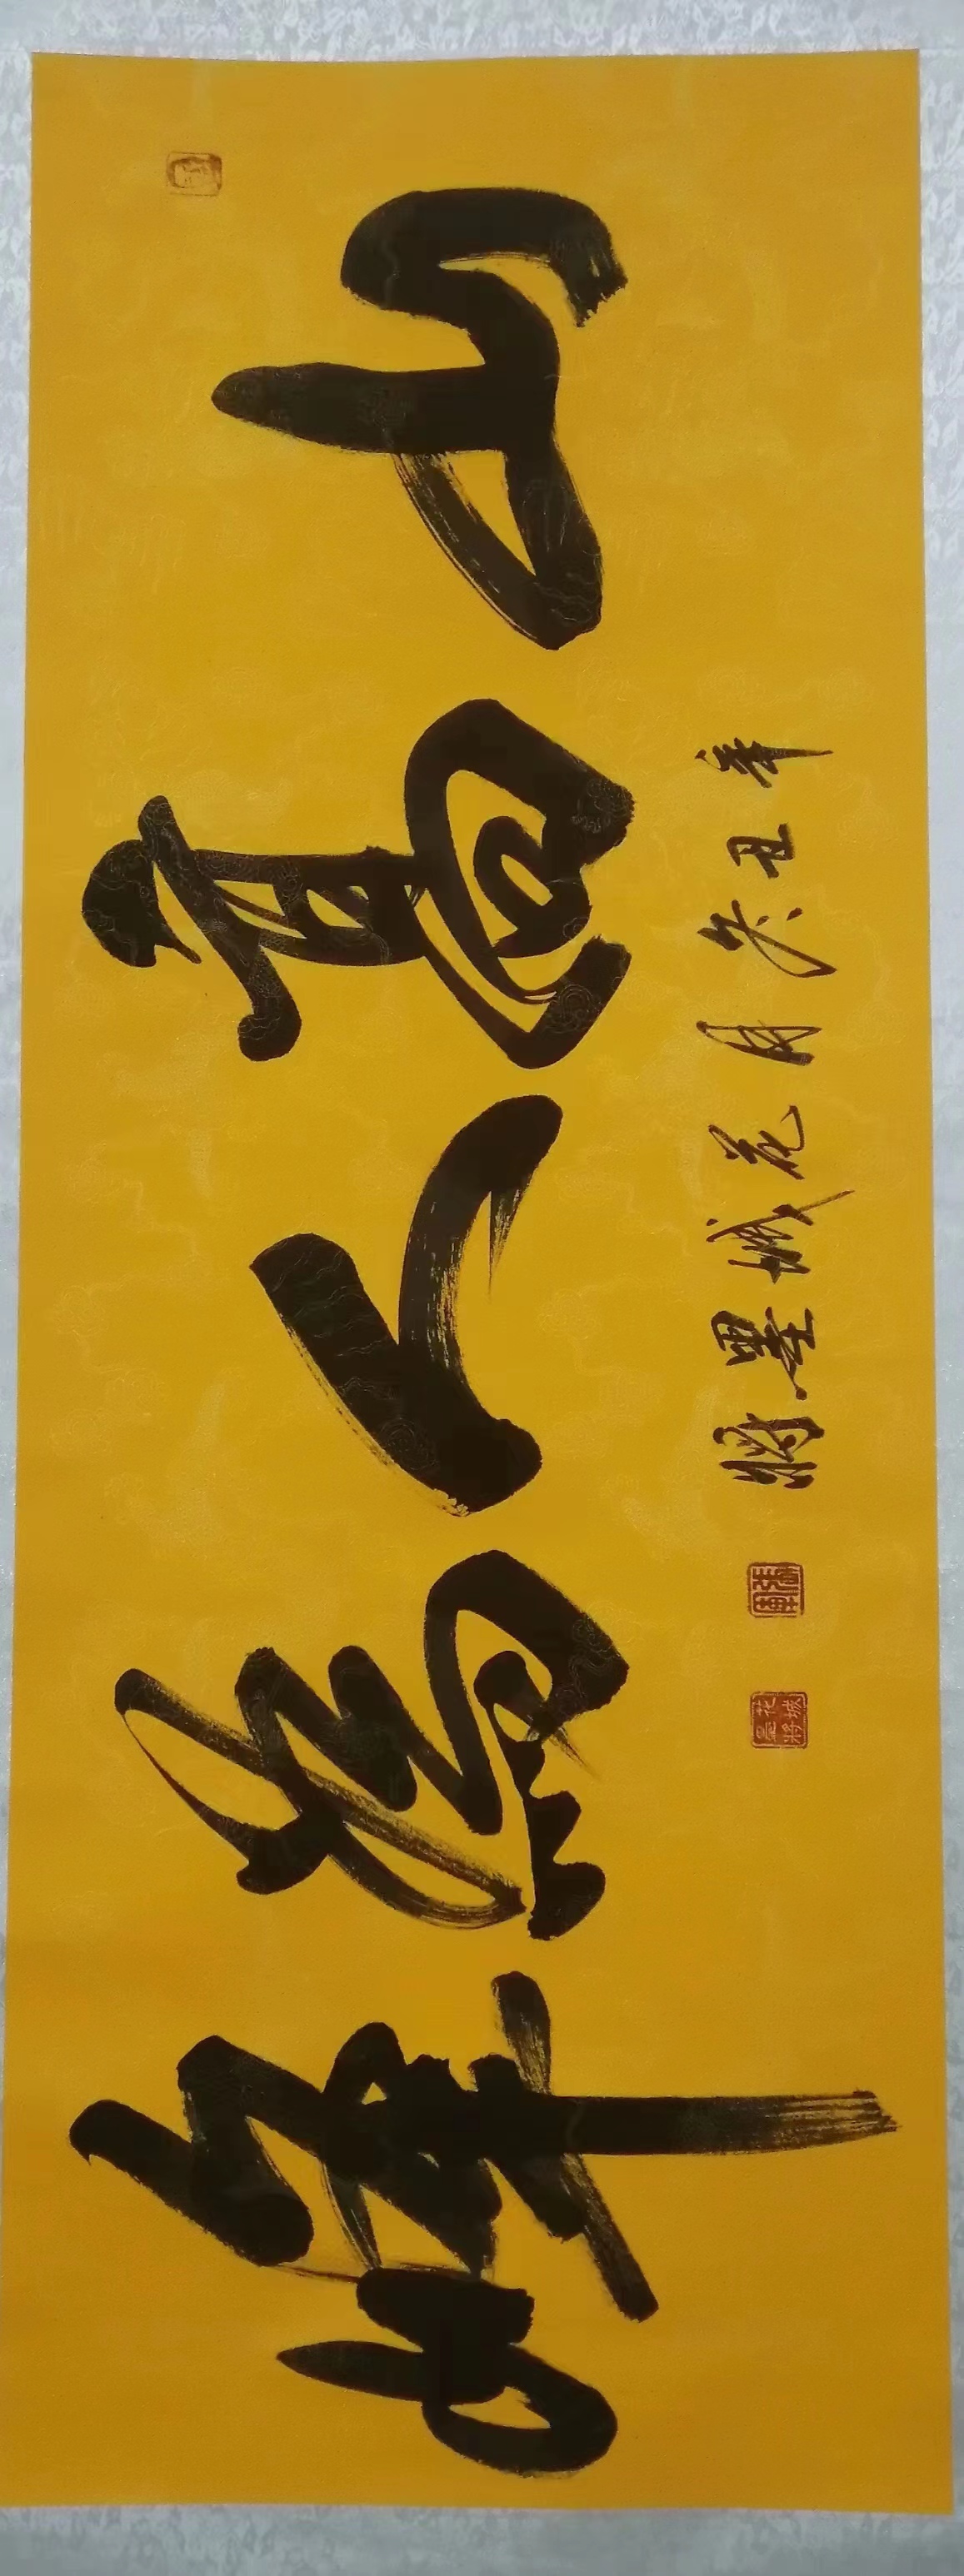 山高人為峰
辛丑冬月花城墨將
張軍
花城墨將